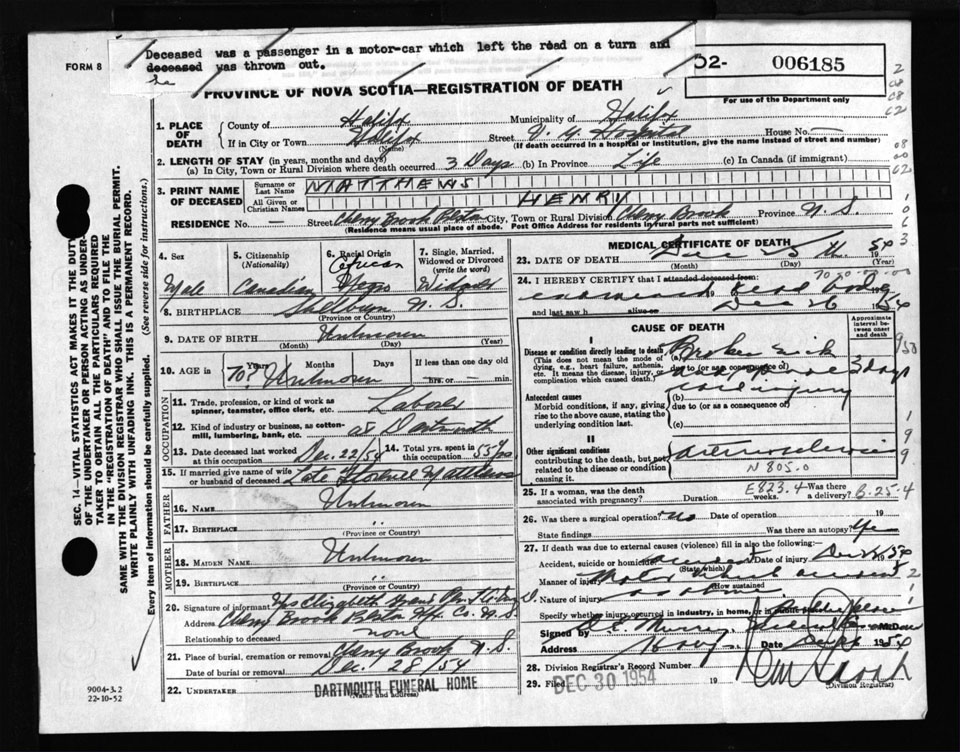 Deceased was a passenger in a motor-car which left the road on a turn and
deceased was thrown out.
he
FORM 8
006185
PROVINCE OF NOVA SCOTIA—REGISTRATION OF DEATH
For use of the Department only
1. PLACE OF DEATH
County of Halifx Municipality of Halifx
If in City or Town Halifx Street V. G. Hospital House No. —
(Name) (If death occurred in a hospital or institution, give the name instead of street and number)
2. LENGTH OF STAY (in years, months and days)
(a) In City, Town or Rural Division where death occurred 3 Days (b) In Province Life (c) In Canada (if immigrant)
3. PRINT NAME OF DECEASED
Surname or Last Name MATTHEWS
All Given or Christian Names HENRY
RESIDENCE No. — Street Cherry Brook Preston City, Town or Rural Division Cherry Brook Province N. S.
(Residence means usual place of abode. Post Office Address for residents in rural parts not sufficient)
4. Sex
Male
5. Citizenship
(Nationality)
Canadian
6. Racial Origin
African
Negro
7. Single, Married, Widowed or Divorced
(write the word)
Widower
8. BIRTHPLACE Shelburn N. S.
(Province or Country)
9. DATE OF BIRTH Unknown
(Month) (Day) (Year)
10. AGE in 70? Years Months Days If less than one day old
Unknown hrs. or — min.
OCCUPATION
11. Trade, profession or kind of work as spinner, teamster, office clerk, etc. Laborer
12. Kind of industry or business, as cotton-mill, lumbering, bank, etc. at Dartmouth
13. Date deceased last worked at this occupation Dec. 22/54
14. Total yrs. spent in this occupation 55 yrs
15. If married give name of wife or husband of deceased Late Matthews
FATHER
16. NAME Unknown
17. BIRTHPLACE "
(Province or Country)
MOTHER
18. MAIDEN NAME Unknown
19. BIRTHPLACE "
(Province or Country)
20. Signature of informant Mrs Elizabeth
Address Cherry Brook Preston Hfx. Co. N. S.
Relationship to deceased none
21. Place of burial, cremation or removal Cherry Brook N. S.
Date of burial or removal Dec. 28/54
22. UNDERTAKER DARTMOUTH FUNERAL HOME
(Name and address)
MEDICAL CERTIFICATE OF DEATH
23. DATE OF DEATH Dec 25 th. 1954
(Month) (Day) (Year)
24. I HEREBY CERTIFY that I attended deceased from:
examined dead body
and last saw h alive on Dec 26 1954
CAUSE OF DEATH
Approximate interval between onset and death
I
Disease or condition directly leading to death
(This does not mean the mode of dying, e.g., heart failure, asthenia, etc. It means the disease, injury, complication which caused death.)
(a) Broken
due to (or as consequence of)
3 days
Antecedent causes
Morbid conditions, if any, giving rise to the above cause, stating the underlying condition last.
(b) injury
due to (or as a consequence of)
(c)
II
Other significant conditions contributing to the death, but not related to the disease or condition causing it.
Arteriosclerosis
N 805.0
25. If a woman, was the death associated with pregnancy? Duration weeks. Was there a delivery?
E823.4
26. Was there a surgical operation? No Date of operation 19
State findings Was there an autopsy? Yes
27. If death was due to external causes (violence) fill in also the following:
Accident, suicide or homicide? accident Date of injury Dec 1954
(State which)
Manner of injury Motor accident
(How sustained)
Nature of injury as above
Specify whether injury occurred in industry, in home, or in public place
Signed by Murray
Address Date Dec 26 1954
28. Division Registrar's Record Number
29. Filed DEC 30 1954 19
(Division Registrar)
SEC. 14—VITAL STATISTICS ACT MAKES IT THE DUTY
OF THE UNDERTAKER OR PERSON ACTING AS UNDER-
TAKER TO OBTAIN ALL THE PARTICULARS REQUIRED
IN THE "REGISTRATION OF DEATH" AND TO FILE THE
SAME WITH THE DIVISION REGISTRAR WHO SHALL ISSUE THE BURIAL PERMIT.
WRITE PLAINLY WITH UNFADING INK. THIS IS A PERMANENT RECORD.
Every item of information should be carefully supplied. (See reverse side for instructions.)
9004-3.2
22-10-52